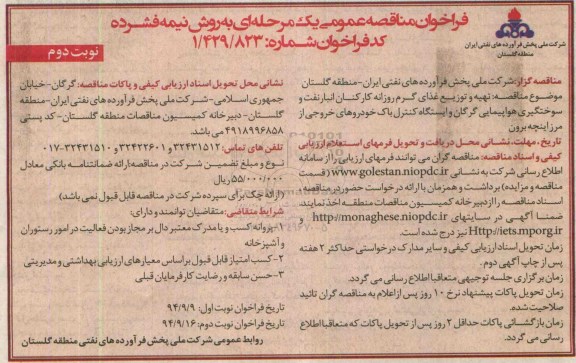 فراخوان مناقصه عمومی یک مرحله‌ای به روش نیمه فشرده
کد فراخوان شماره: ۱/۴۲۹/۸۲۳
نوبت دوم
شرکت ملی پخش فرآورده های نفتی ایران
منطقه گلستان
مناقصه گزار: شرکت ملی پخش فرآورده های نفتی ایران-منطقه گلستان
موضوع مناقصه: تهیه و توزیع غذای گرم روزانه کارکنان انبار نفت و
سوختگیری هواپیمایی گرگان و ایستگاه کنترل باک خودروهای خروجی از
مرز اینچه برون
تاریخ، مهلت، نشانی محل دریافت و تحویل فرمهای استعلام ارزیابی
کیفی و اسناد مناقصه: مناقصه گران می توانند فرمهای ارزیابی را از سامانه
اطلاع رسانی شرکت به نشانی www.golestan.niopdc.ir (قسمت
مناقصه و مزایده) برداشت و همزمان با ارائه درخواست حضور در مناقصه،
اسناد مناقصه را از دبیرخانه کمیسیون مناقصات منطقه اخذ نمایند
ضمنا آگهی در سایتهای http://monaghese.niopdc.ir و
Http://iets.mporg.ir نیز درج شده است.
زمان تحویل اسناد ارزیابی کیفی و سایر مدارک درخواستی حداکثر ۲ هفته
پس از چاپ آگهی دوم.
زمان برگزاری جلسه توجیهی متعاقبا اطلاع رسانی می گردد.
زمان تحویل پاکات پیشنهاد نرخ ۱۰ روز پس از اعلام به مناقصه گران تائید
صلاحیت شده.
زمان بازگشائی پاکات حداقل ۲ روز پس از تحویل پاکات که متعاقبا اطلاع
رسانی می گردد.
نشانی محل تحویل اسناد ارزیابی کیفی و پاکات مناقصه: گرگان-خیابان
جمهوری اسلامی-شرکت ملی پخش فرآورده های نفتی ایران-منطقه
گلستان- دبیرخانه کمیسیون مناقصات منطقه گلستان- کد پستی
۴۹۱۸۹۹۶۸۵۸ می باشد.
تلفن های تماس: ۳۲۴۳۱۵۱۲ و ۳۲۴۲۲۶۰۱ و ۳۲۴۳۱۵۱۰-۰۱۷
نوع و مبلغ تضمین شرکت در مناقصه: ارائه ضمانتنامه بانکی معادل
۵۵/۰۰۰/۰۰۰ ریال
(ارائه چک برای سپرده شرکت در مناقصه قابل قبول نمی باشد)
شرایط متقاضی: متقاضیان توانمند و دارای:
۱-پروانه کسب و یا مدرک معتبر دال بر مجاز بودن فعالیت در امور رستوران
و آشپزخانه
۲-کسب امتیاز قابل قبول بر اساس معیارهای ارزیابی بهداشتی و مدیریتی
۳-حسن سابقه و رضایت کارفرمایان قبلی
تاریخ فراخوان نوبت اول: ۹۴/۹/۹
تاریخ فراخوان نوبت دوم: ۹۴/۹/۱۶
روابط عمومی شرکت ملی پخش فرآورده های نفتی منطقه گلستان